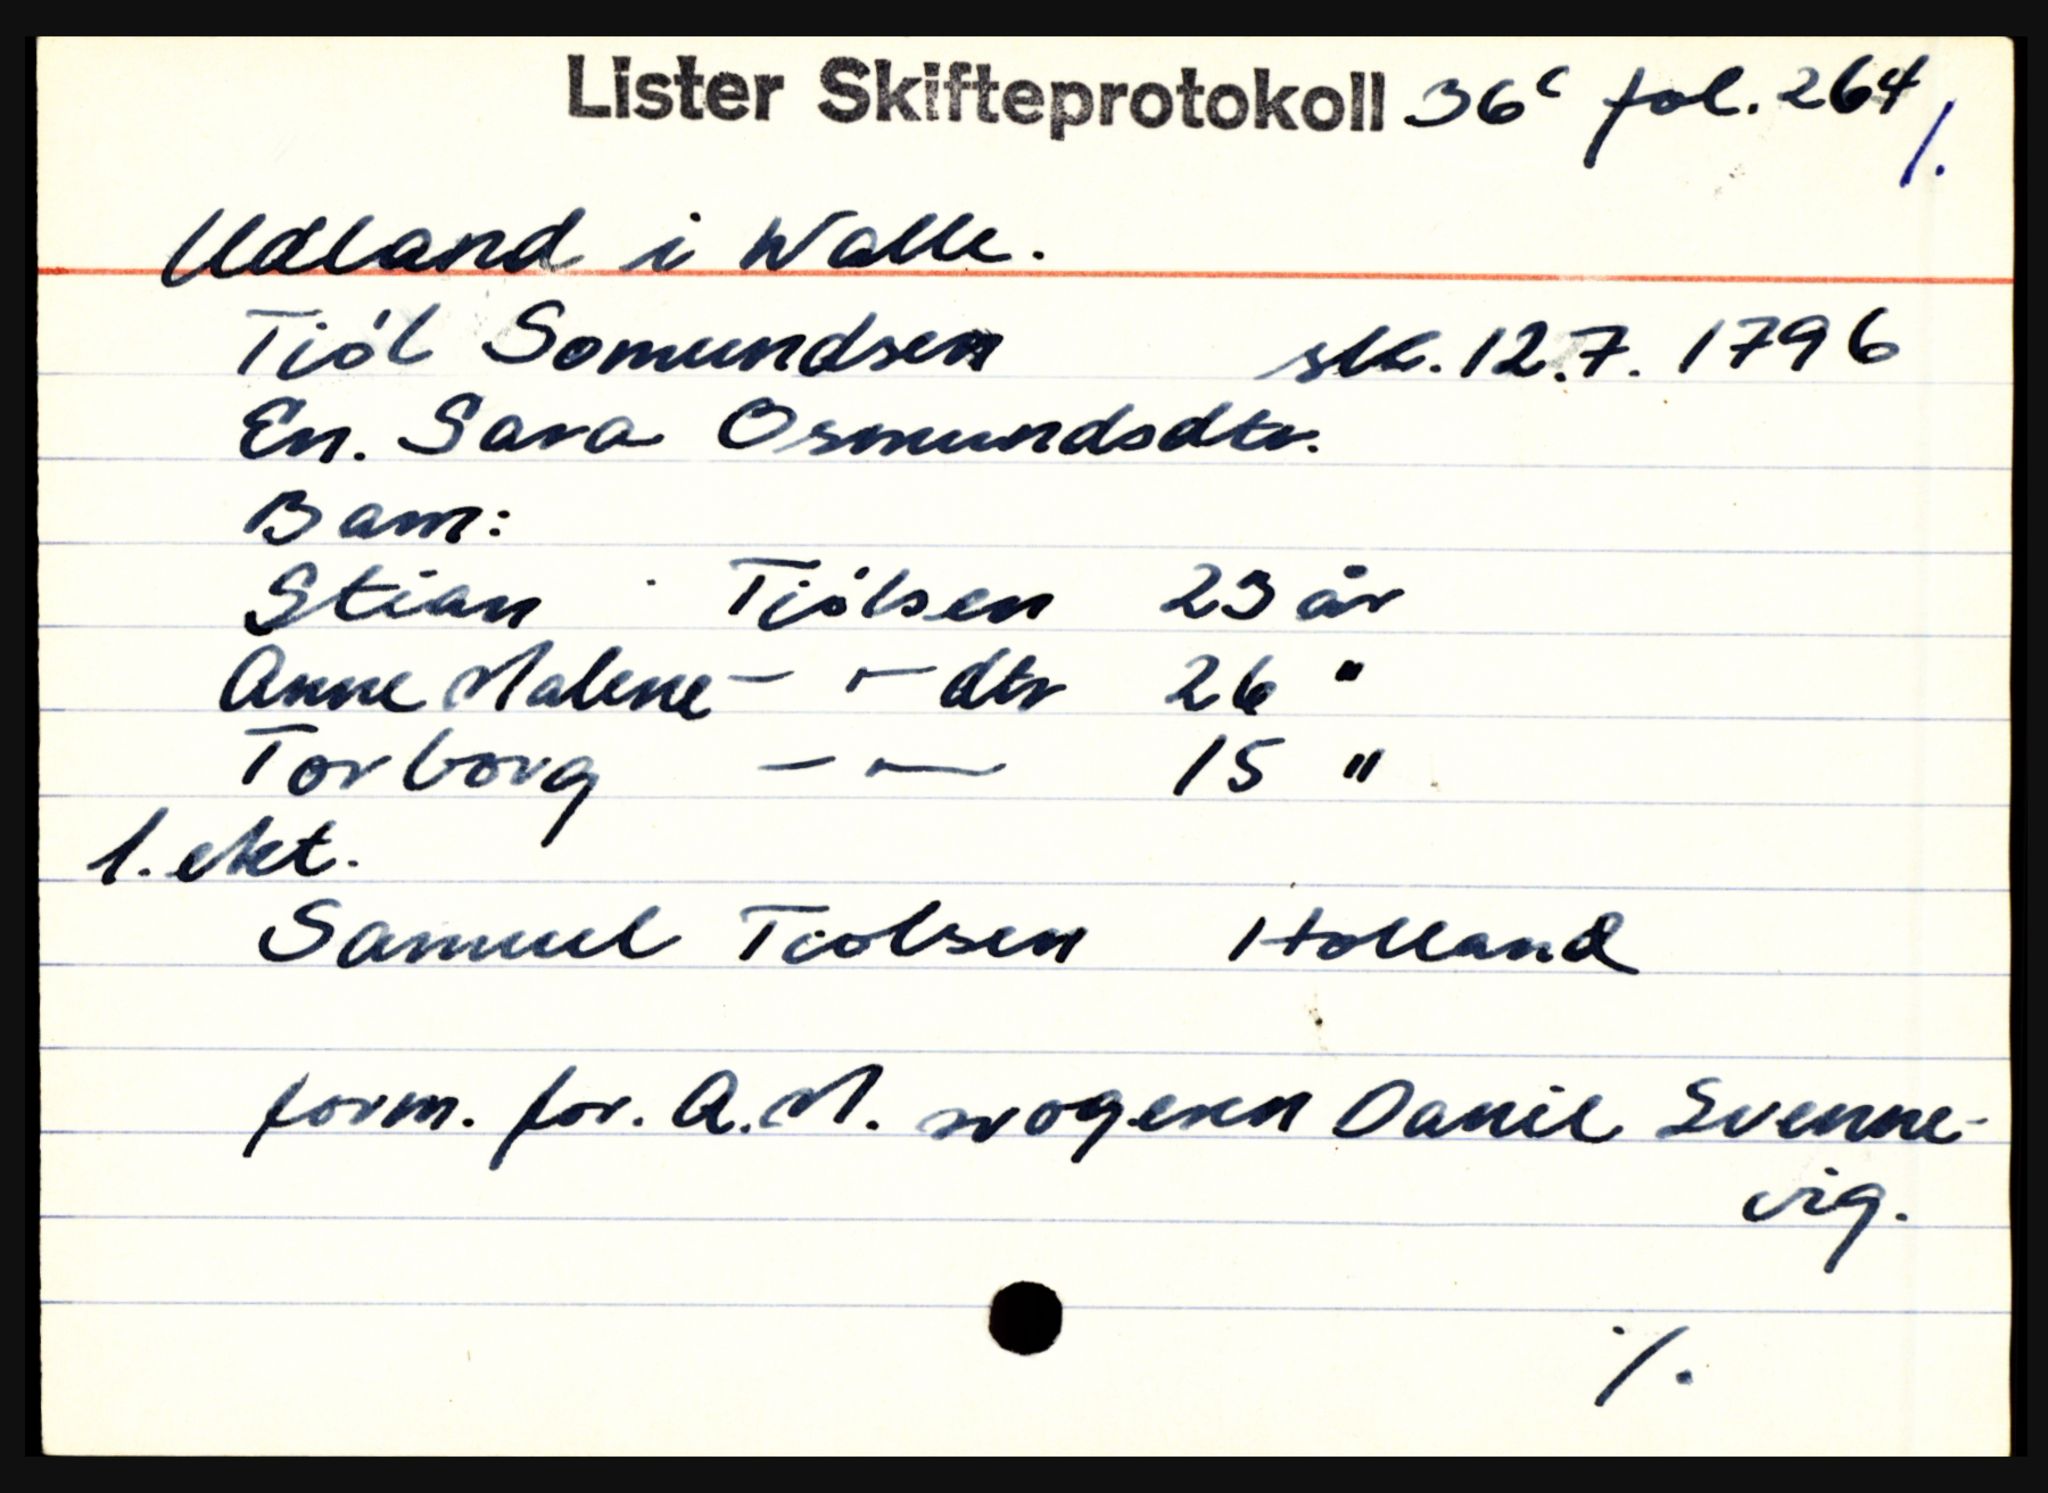 Lister Skifteprotokoll 36c fol. 264
/.
Udland i Walle.
Tiól Somundsen skk. 12.7. 1796
En. Sara Osmundsdtr.
Barn:
Stian Tiólsen 23 år
Anne Malene - - dtr 26 "
Torborg - - 15 "
1. ekt.
Samuel Tiolsen Holland
form. for. A.M. svogeren Daniel Svenne-
vig.
%.